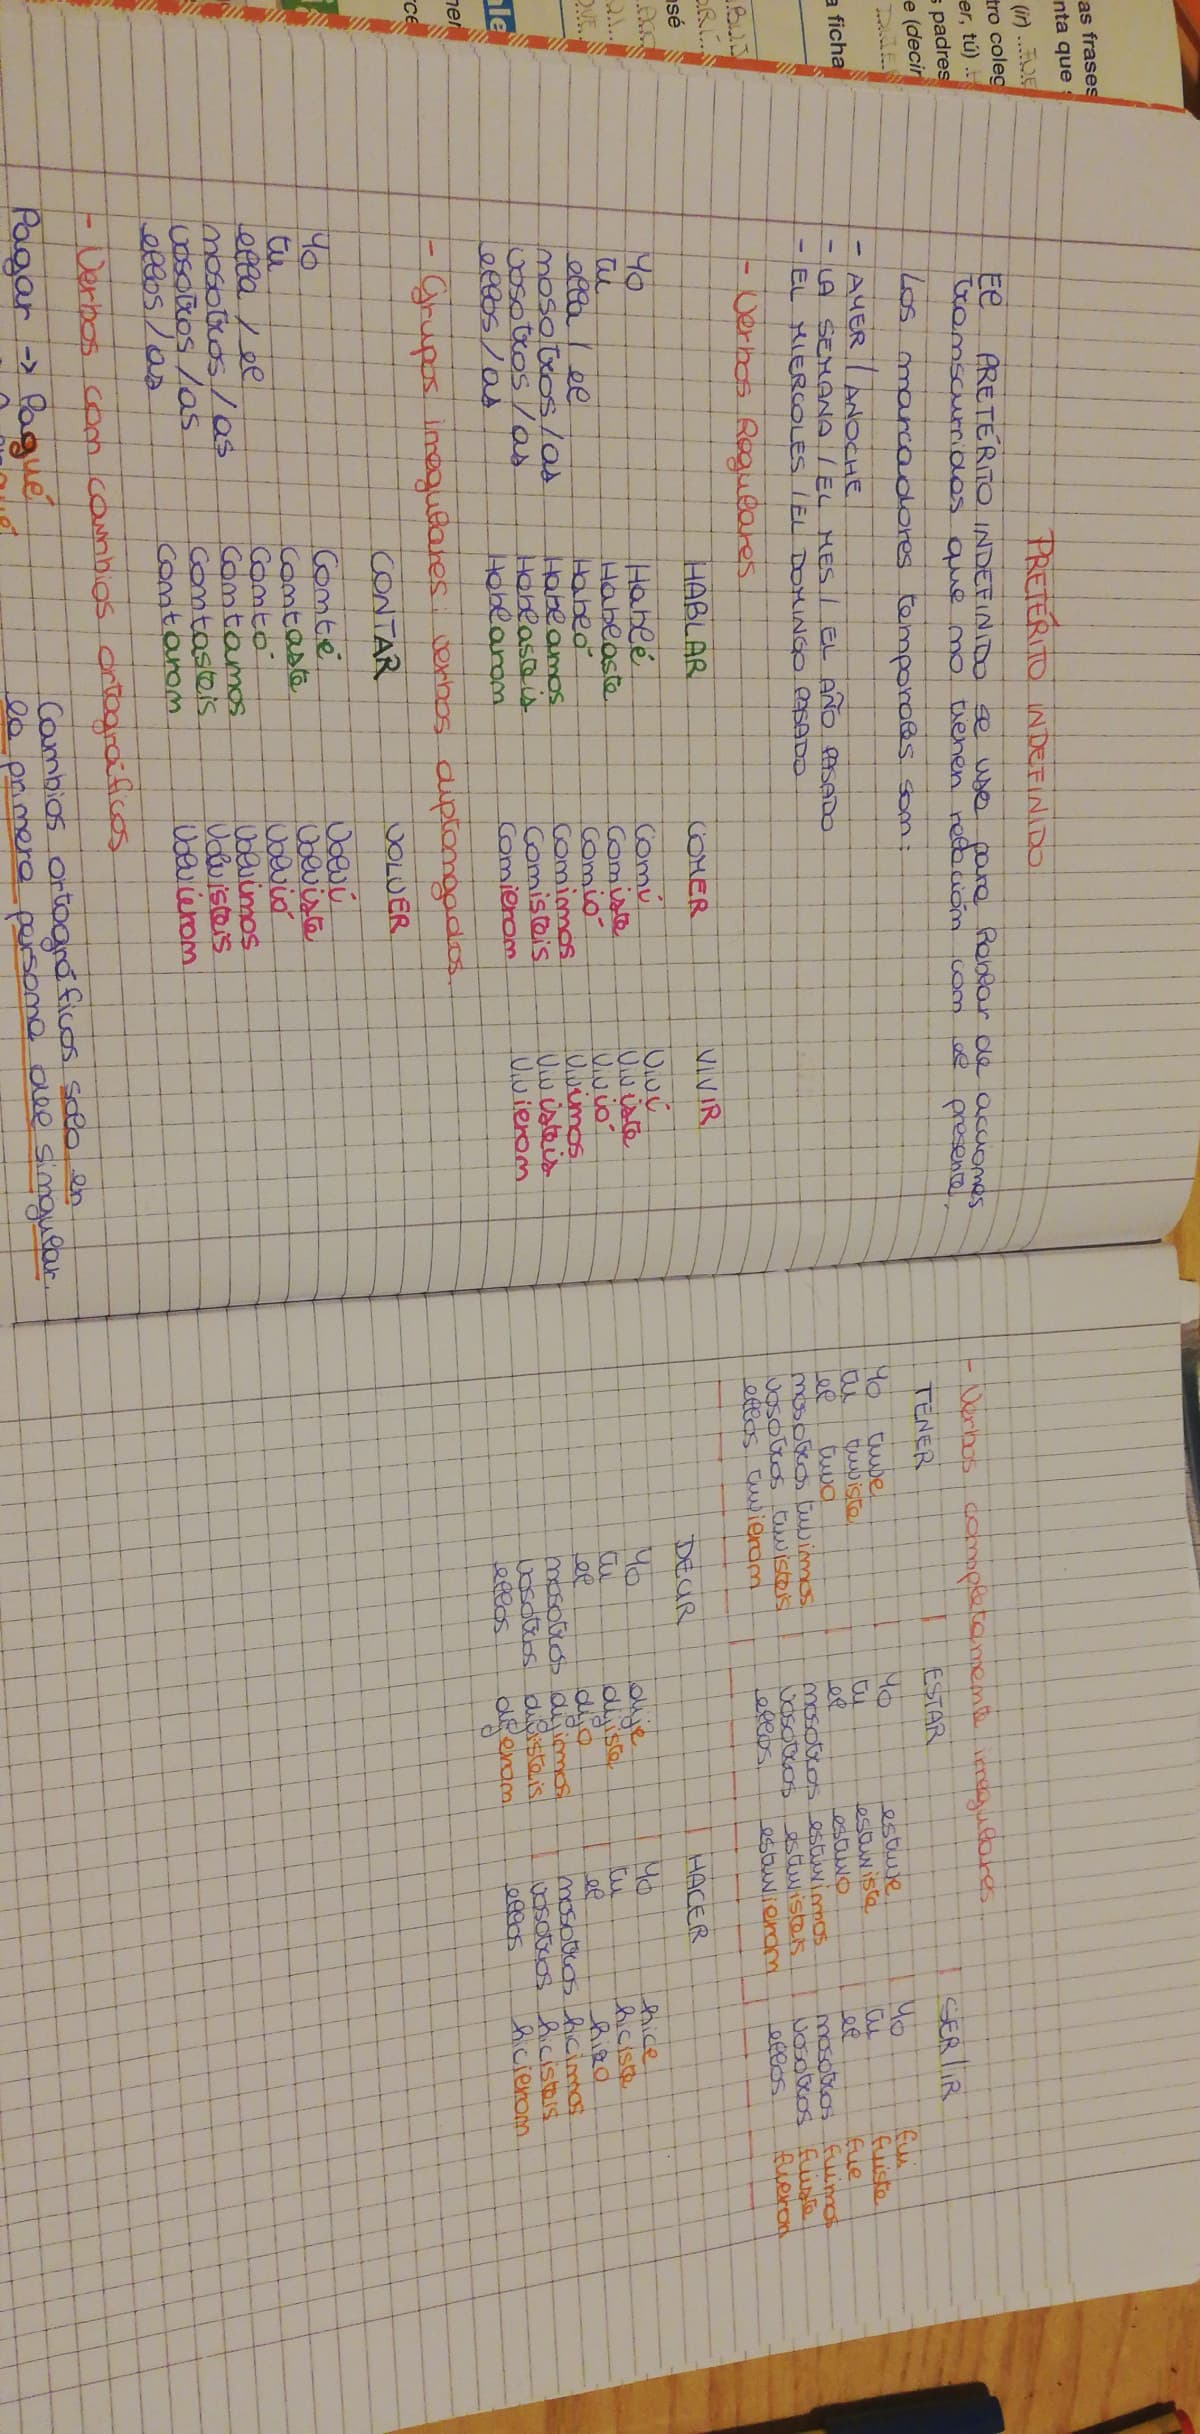 as frases
nta que
(ir)
tro coleg
er, tú)
s padres
e (decir
a ficha
PRETÉRITO INDEFINIDO
El PRETÉRITO INDEFINIDO se usa para hablar de acciones
transcurridas que no tienen relación con el presente.
Los marcadores temporales son:
- AYER / ANOCHE
- LA SEMANA / EL MES / EL AÑO PASADO
- EL MIERCOLES / EL DOMINGO PASADO
- Verbos Regulares
HABLAR COMER VIVIR
Yo Hablé Comí Viví
tu Hablaste Comiste Viviste
ella / el Habló Comió Vivió
nosotros/as Hablamos Comimos Vivimos
vosotros/as Hablasteis Comisteis Vivisteis
ellos/as Hablaron Comieron Vivieron
- Grupos irregulares: verbos diptongados.
CONTAR VOLVER
Yo Conté Volví
tu Contaste Volviste
ella / el Contó Volvió
nosotros/as Contamos Volvimos
vosotros/as Contasteis Volvisteis
ellos/as Contaron Volvieron
- Verbos con cambios ortográficos
Cambios ortográficos solo en
la primera persona del singular.
Pagar → Pagué
- Verbos completamente irregulares
TENER ESTAR SER/IR
Yo tuve Yo estuve Yo fui
tu tuviste tu estuviste tu fuiste
el tuvo el estuvo el fue
nosotros tuvimos nosotros estuvimos nosotros fuimos
vosotros tuvisteis vosotros estuvisteis vosotros fuiste
ellos tuvieron ellos estuvieron ellos fueron
DECIR HACER
Yo dije Yo hice
tu dijiste tu hiciste
el dijo el hizo
nosotros dijimos nosotros hicimos
vosotros dijisteis vosotros hicisteis
ellos dijeron ellos hicieron